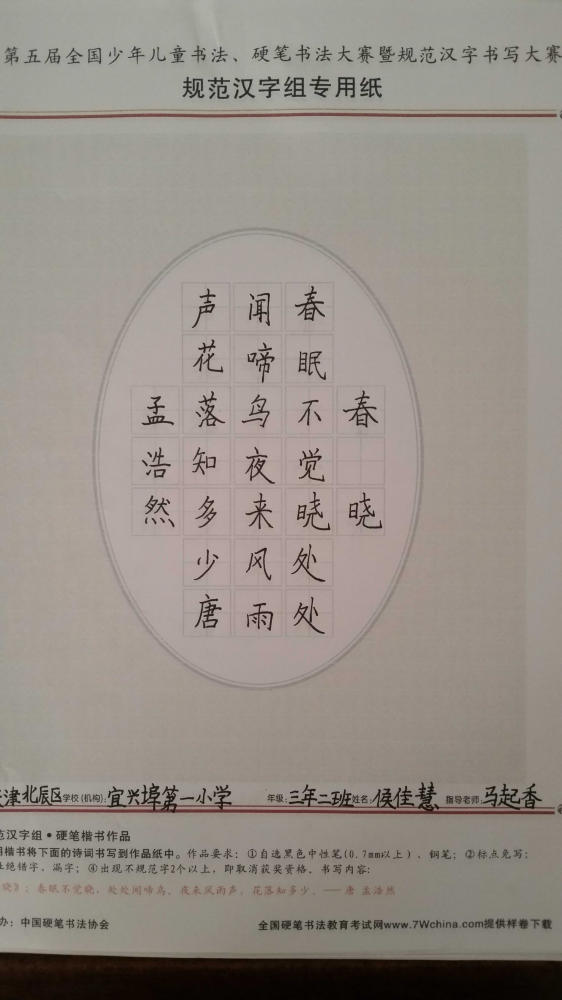 第五届全国少年儿童书法、硬笔书法大赛暨规范汉字书写大赛
规范汉字组专用纸
春晓
春眠不觉晓处处
闻啼鸟夜来风雨
声花落知多少唐
孟浩然
津北辰区学校(机构):宜兴埠第一小学 年级:三年二班姓名:侯佳慧 指导老师:马起香
范汉字组·硬笔楷书作品
用楷书将下面的诗词书写到作品纸中。作品要求:①自选黑色中性笔(0.7mm以上)、钢笔;②标点免写;
杜绝错字、漏字;④出现不规范字2个以上,即取消获奖资格。书写内容:
晓》:春眠不觉晓,处处闻啼鸟。夜来风雨声,花落知多少。——唐 孟浩然
办:中国硬笔书法协会 全国硬笔书法教育考试网www.7Wchina.com提供样卷下载